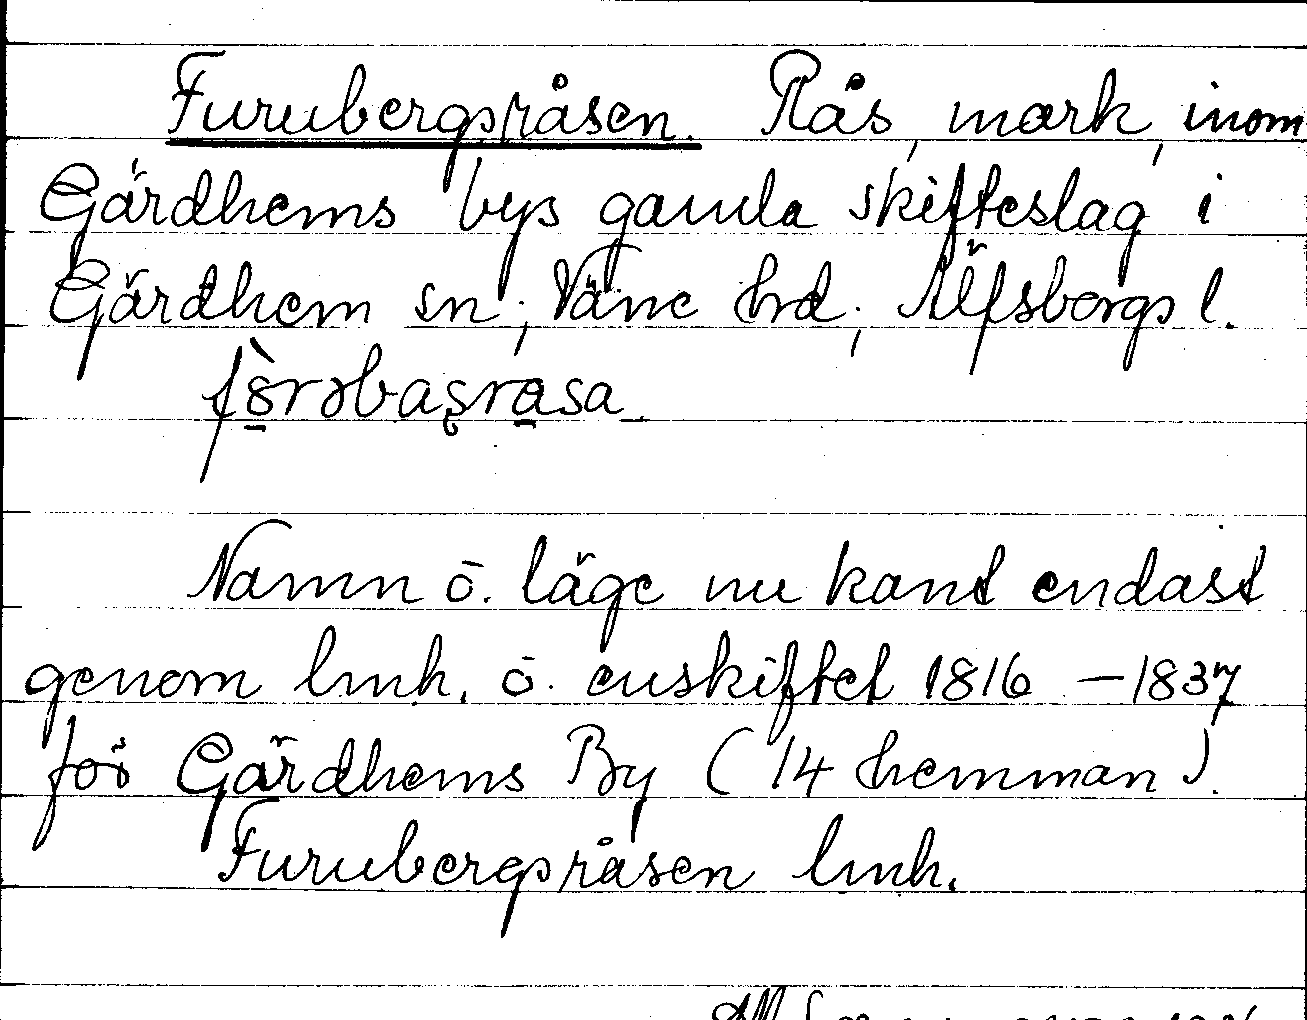 Furubergsråsen. Rås, mark, inom
Gärdhems bys gamla skifteslag i
Gärdhem sn; Väne hd; Älfsborgs l.
Namn o. läge nu känt endast
genom lmh. o. enskiftet 1816 – 1837
för Gärdhems By (14 hemman).
Furubergsråsen lmh.